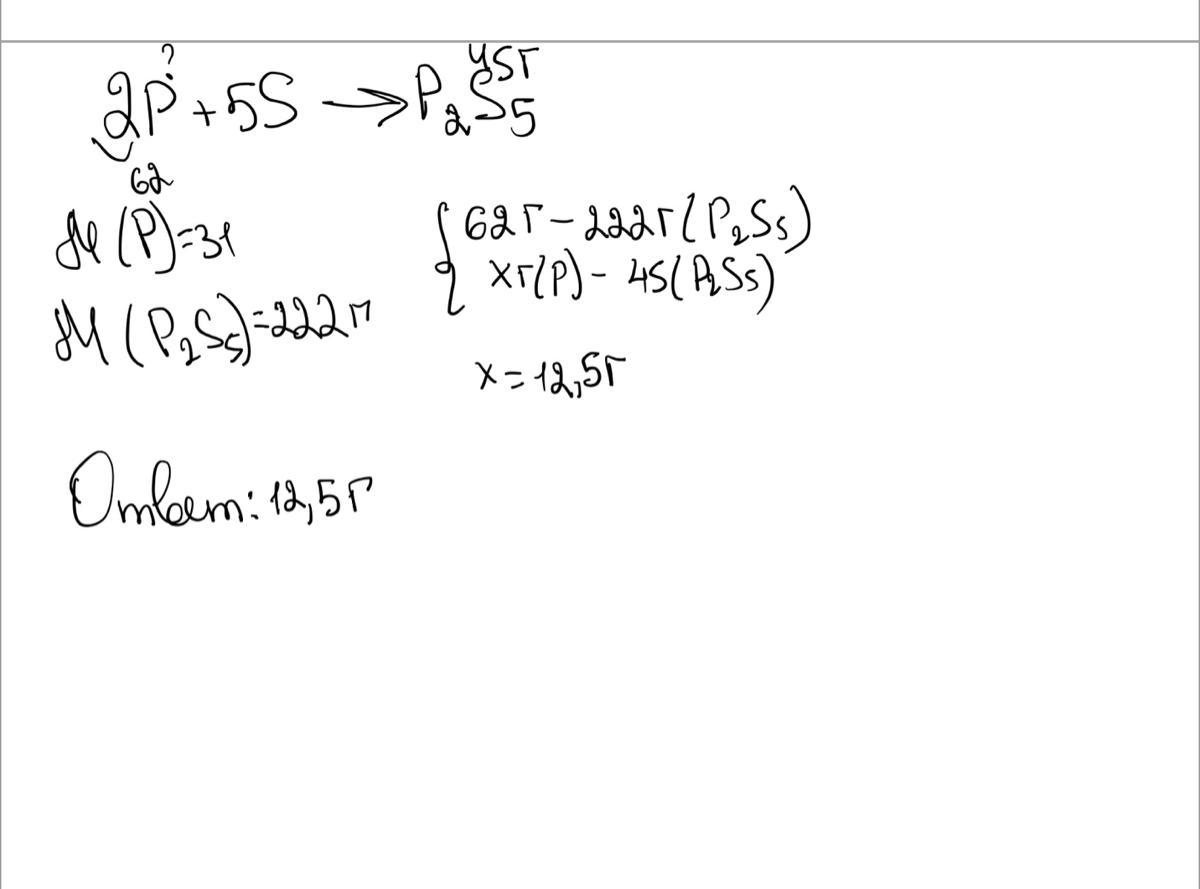 ?
45г
2P + 5S → P₂S₅
62
M (P)=31
M (P₂S₅)=222г
{ 62г – 222г (P₂S₅)
xг(P) – 45(P₂S₅)
x = 12,5г
Ответ: 12,5г